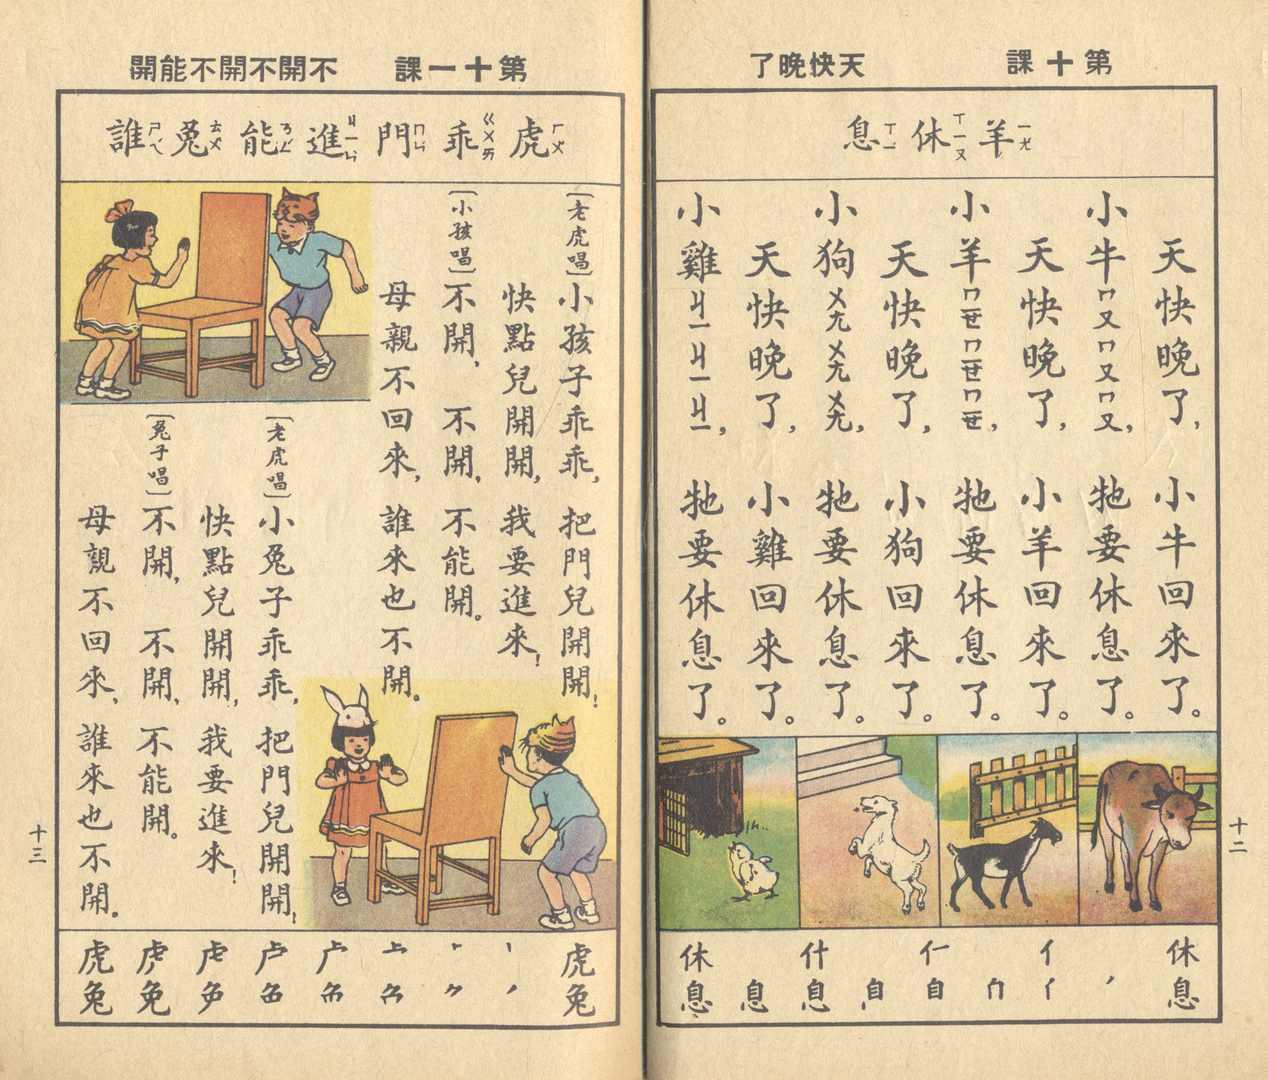 第十課
天快晚了
羊ㄧㄤ 休ㄒㄧㄡ 息ㄒㄧ
天快晚了，小牛回來了。
小牛ㄇㄡㄇㄡㄇㄡ，牠要休息了。
天快晚了，小羊回來了。
小羊ㄇㄝㄇㄝㄇㄝ，牠要休息了。
天快晚了，小狗回來了。
小狗ㄨㄤㄨㄤㄨㄤ，牠要休息了。
天快晚了，小雞回來了。
小雞ㄐㄧㄐㄧㄐㄧ，牠要休息了。
休 亻 亻一 什 休
息 丿 亻 冂 自 自 息 息 息
十二
第十一課
不開不開不能開
虎ㄏㄨ 乖ㄍㄨㄞ 門ㄇㄣ 進ㄐㄧㄣ 能ㄋㄥ 兔ㄊㄨ 誰ㄕㄟ
〔老虎唱〕小孩子乖乖，把門兒開開！
快點兒開開，我要進來！
〔小孩唱〕不開，不開，不能開。
母親不回來，誰來也不開。
〔老虎唱〕小兔子乖乖，把門兒開開！
快點兒開開，我要進來！
〔兔子唱〕不開，不開，不能開。
母親不回來，誰來也不開。
虎 虎
兔 兔
十三